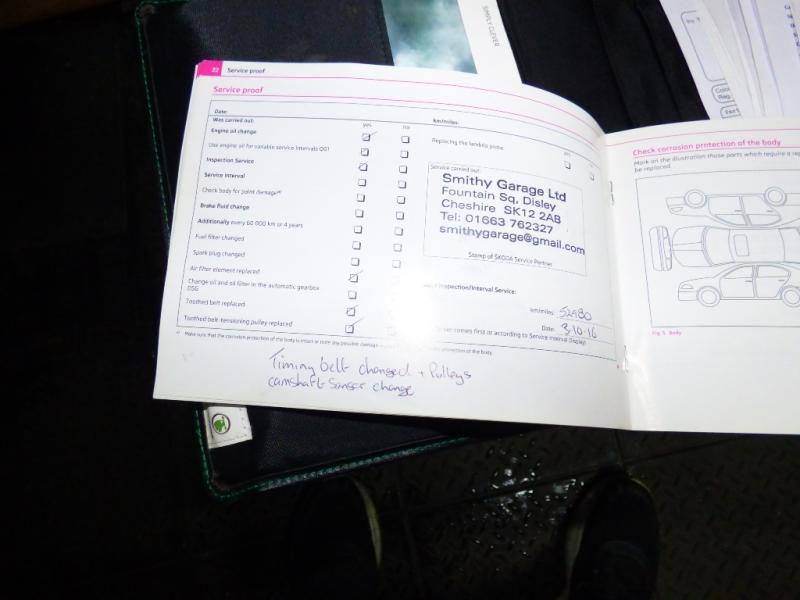 SIMPLY CLEVER
22 Service proof
Service proof
Date:
km/miles:
Was carried out:
yes no
Engine oil change
Use engine oil for variable service intervals QG1
Inspection Service
Service interval
Check body for paint damage
Brake fluid change
Additionally every 60 000 km or 4 years
Fuel filter changed
Spark plug changed
Air filter element replaced
Change oil and oil filter in the automatic gearbox
DSG
Toothed belt replaced
Toothed belt-tensioning pulley replaced
Replacing the lambda probe
yes
Service carried out:
Smithy Garage Ltd
Fountain Sq, Disley
Cheshire SK12 2AB
Tel: 01663 762327
smithygarage@gmail.com
Stamp of ŠKODA Service Partner
Inspection/Interval Service:
km/miles: 52980
Date: 3.10.16
comes first or according to Service Interval Display)
Make sure that the corrosion protection of the body is intact or note any possible damage
protection of the body.
Timing belt changed + Pulleys
camshaft sensor change
Check corrosion protection of the body
Mark on the illustration those parts which require a
be replaced.
Fig. 5 Body